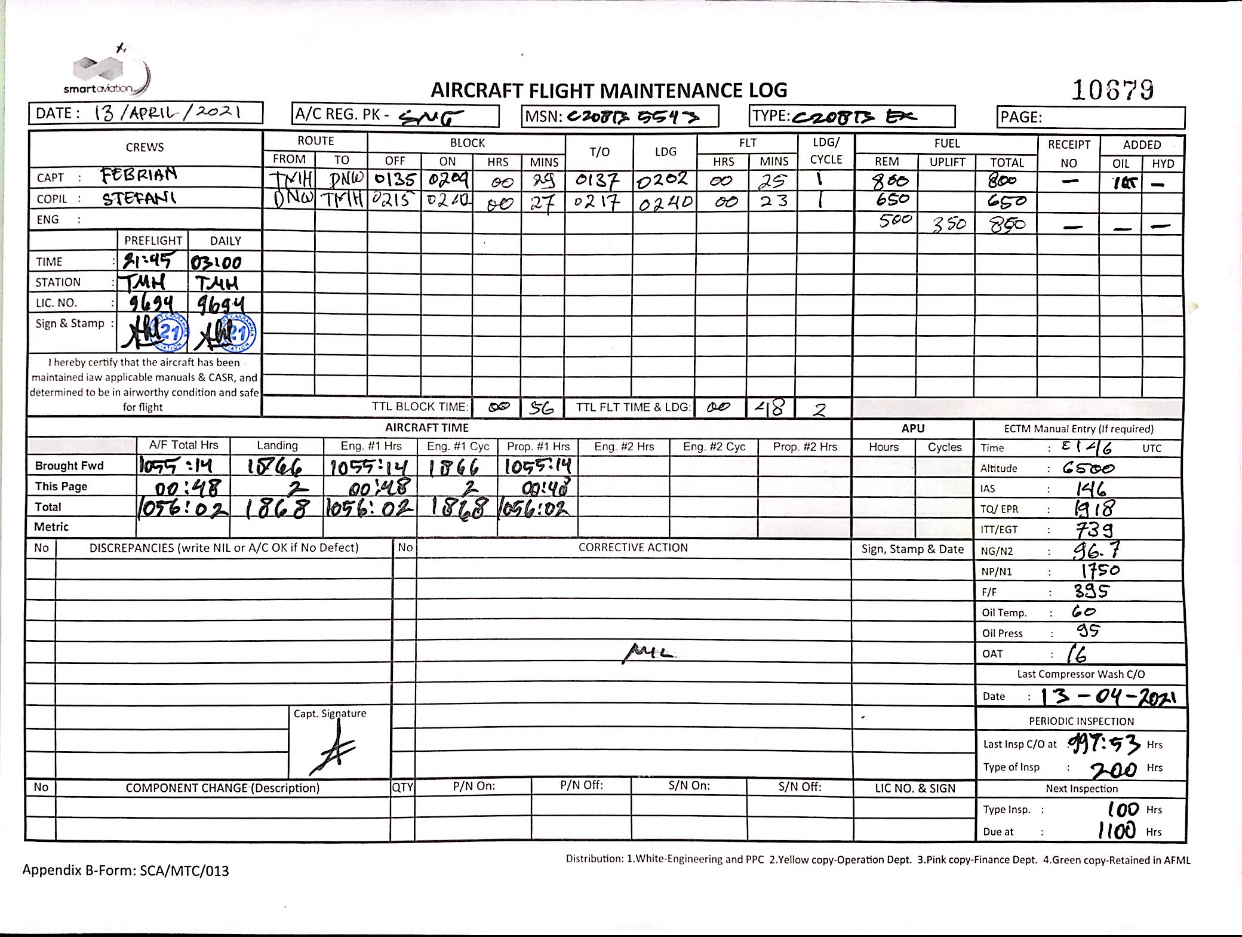 smartaviation
AIRCRAFT FLIGHT MAINTENANCE LOG
10679
DATE : 13 /APRIL /2021 A/C REG. PK - SNG MSN: C208B 5543 TYPE: C208B EX PAGE:
CREWS ROUTE BLOCK T/O LDG FLT LDG/ CYCLE FUEL RECEIPT NO ADDED
FROM TO OFF ON HRS MINS HRS MINS REM UPLIFT TOTAL OIL HYD
CAPT : FEBRIAN TMH DNW 0135 0204 00 29 0137 0202 00 25 1 800 800 – –
COPIL : STEFANI DNW TMH 0215 00 27 0217 0240 00 23 1 650 650
ENG : 500 350 850 – – –
PREFLIGHT DAILY
TIME : 21:45 03:00
STATION : TMH TMH
LIC. NO. : 9694 9694
Sign & Stamp : 21 21
I hereby certify that the aircraft has been
maintained iaw applicable manuals & CASR, and
determined to be in airworthy condition and safe
for flight
TTL BLOCK TIME: 00 56 TTL FLT TIME & LDG: 00 48 2
AIRCRAFT TIME APU ECTM Manual Entry (If required)
A/F Total Hrs Landing Eng. #1 Hrs Eng. #1 Cyc Prop. #1 Hrs Eng. #2 Hrs Eng. #2 Cyc Prop. #2 Hrs Hours Cycles Time : UTC
Brought Fwd 1055:14 1866 1055:14 1866 1055:14 Altitude : 6500
This Page 00:48 2 00:48 2 00:48 IAS : 146
Total 1056:02 1868 1056:02 1868 1056:02 TQ/ EPR : 1918
Metric ITT/EGT : 739
No DISCREPANCIES (write NIL or A/C OK if No Defect) No CORRECTIVE ACTION Sign, Stamp & Date NG/N2 : 96.7
NP/N1 : 1750
F/F : 395
Oil Temp. : 60
Oil Press : 95
NIL OAT : 16
Last Compressor Wash C/O
Date : 13-04-2021
Capt. Signature PERIODIC INSPECTION
Last Insp C/O at : 997:53 Hrs
Type of Insp : 200 Hrs
No COMPONENT CHANGE (Description) QTY P/N On: P/N Off: S/N On: S/N Off: LIC NO. & SIGN Next Inspection
Type Insp. : 100 Hrs
Due at : 1100 Hrs
Distribution: 1.White-Engineering and PPC 2.Yellow copy-Operation Dept. 3.Pink copy-Finance Dept. 4.Green copy-Retained in AFML
Appendix B-Form: SCA/MTC/013